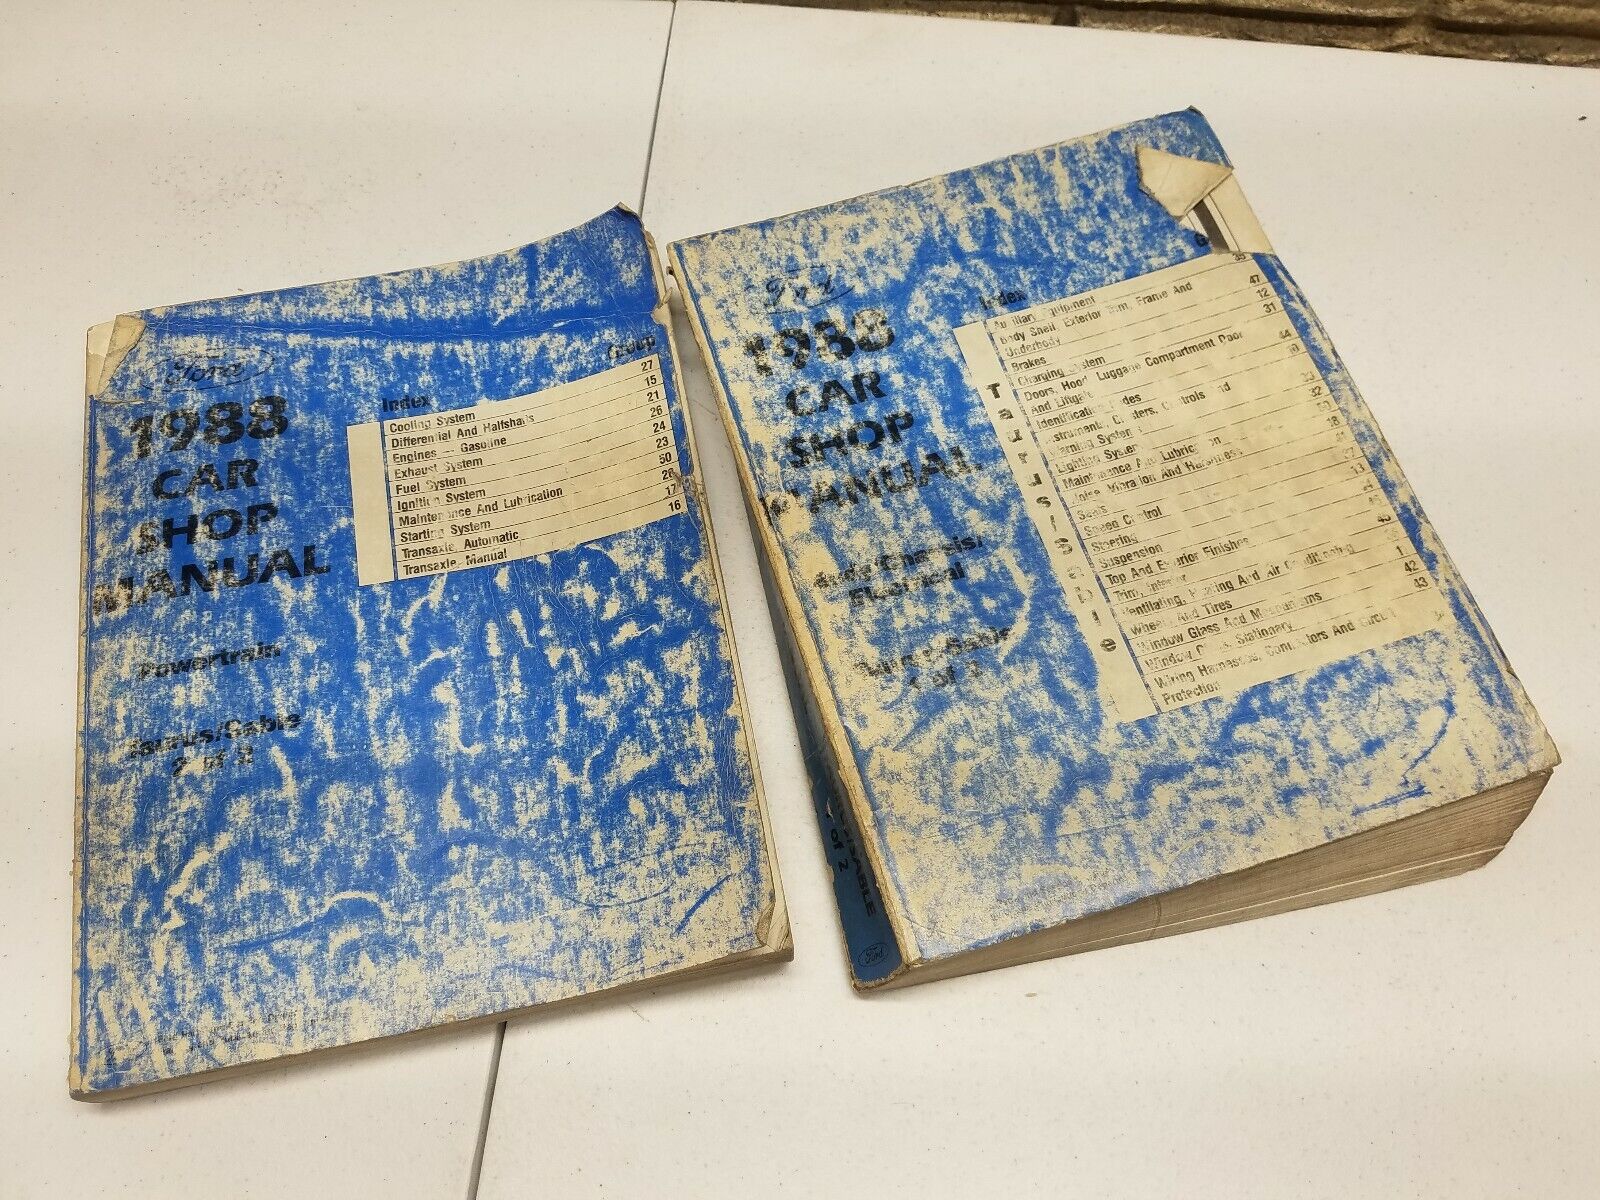 Ford
1988
CAR
SHOP
MANUAL
Powertrain
Taurus/Sable
2 of 2
Index Group
Cooling System 27
Differential And Halfshafts 15
Engines — Gasoline 21
Exhaust System 26
Fuel System 24
Ignition System 23
Maintenance And Lubrication 50
Starting System 28
Transaxle, Automatic 17
Transaxle, Manual 16
Ford
1988
CAR
SHOP
MANUAL
Body/Chassis/
Electrical
Taurus/Sable
1 of 2
Index G
Taurus/Sable
Auxiliary Equipment 35
Body Shell, Exterior Trim, Frame And
Underbody 47
Brakes 12
Charging System 31
Doors, Hood, Luggage Compartment Door
And Liftgate 44
Identification Codes 10
Instruments, Clusters, Controls And
Warning Systems 33
Lighting System 32
Maintenance And Lubrication 50
Noise, Vibration And Harshness 18
Seats 41
Speed Control 37
Steering 13
Suspension 14
Top And Exterior Finishes 45
Trim, Interior
Ventilating, Heating And Air Conditioning
Wheels And Tires 1
Window Glass And Mechanisms 42
Window Glass, Stationary 43
Wiring Harnesses, Connectors And Circuit
Protection
/SABLE
of 2
Ford